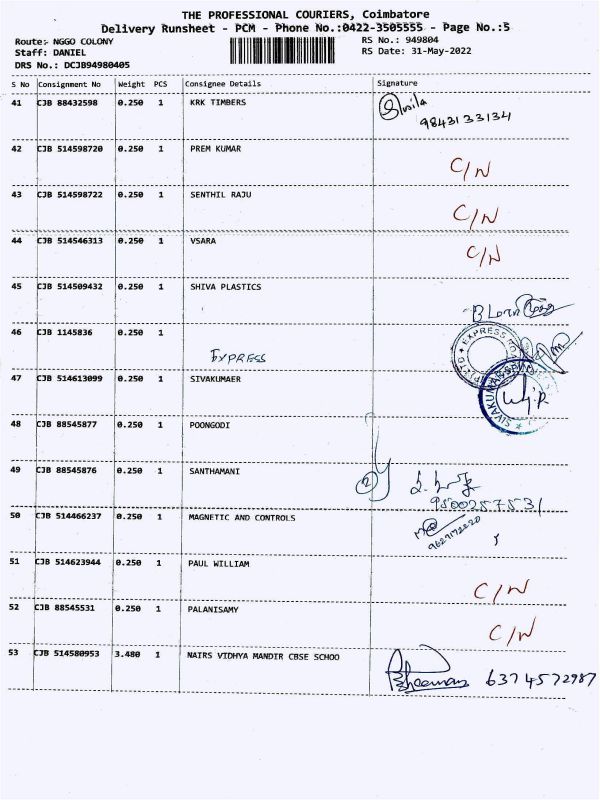 THE PROFESSIONAL COURIERS, Coimbatore
Delivery Runsheet - PCM - Phone No.:0422-3505555 - Page No.:5
Route:- NGGO COLONY RS No.: 949804
Staff: DANIEL RS Date: 31-May-2022
DRS No.: DCJB94980405
S No Consignment No Weight PCS Consignee Details Signature
41 CJB 88432598 0.250 1 KRK TIMBERS
9843133134
42 CJB 514598720 0.250 1 PREM KUMAR C/N
43 CJB 514598722 0.250 1 SENTHIL RAJU C/N
44 CJB 514546313 0.250 1 VSARA C/N
45 CJB 514509432 0.250 1 SHIVA PLASTICS
46 CJB 1145836 0.250 1
EXPRESS
47 CJB 514613099 0.250 1 SIVAKUMAER
48 CJB 88545877 0.250 1 POONGODI
49 CJB 88545876 0.250 1 SANTHAMANI
2
9500257531
50 CJB 514466237 0.250 1 MAGNETIC AND CONTROLS
51 CJB 514623944 0.250 1 PAUL WILLIAM C/N
52 CJB 88545531 0.250 1 PALANISAMY C/N
53 CJB 514580953 3.480 1 NAIRS VIDHYA MANDIR CBSE SCHOO
6374572987